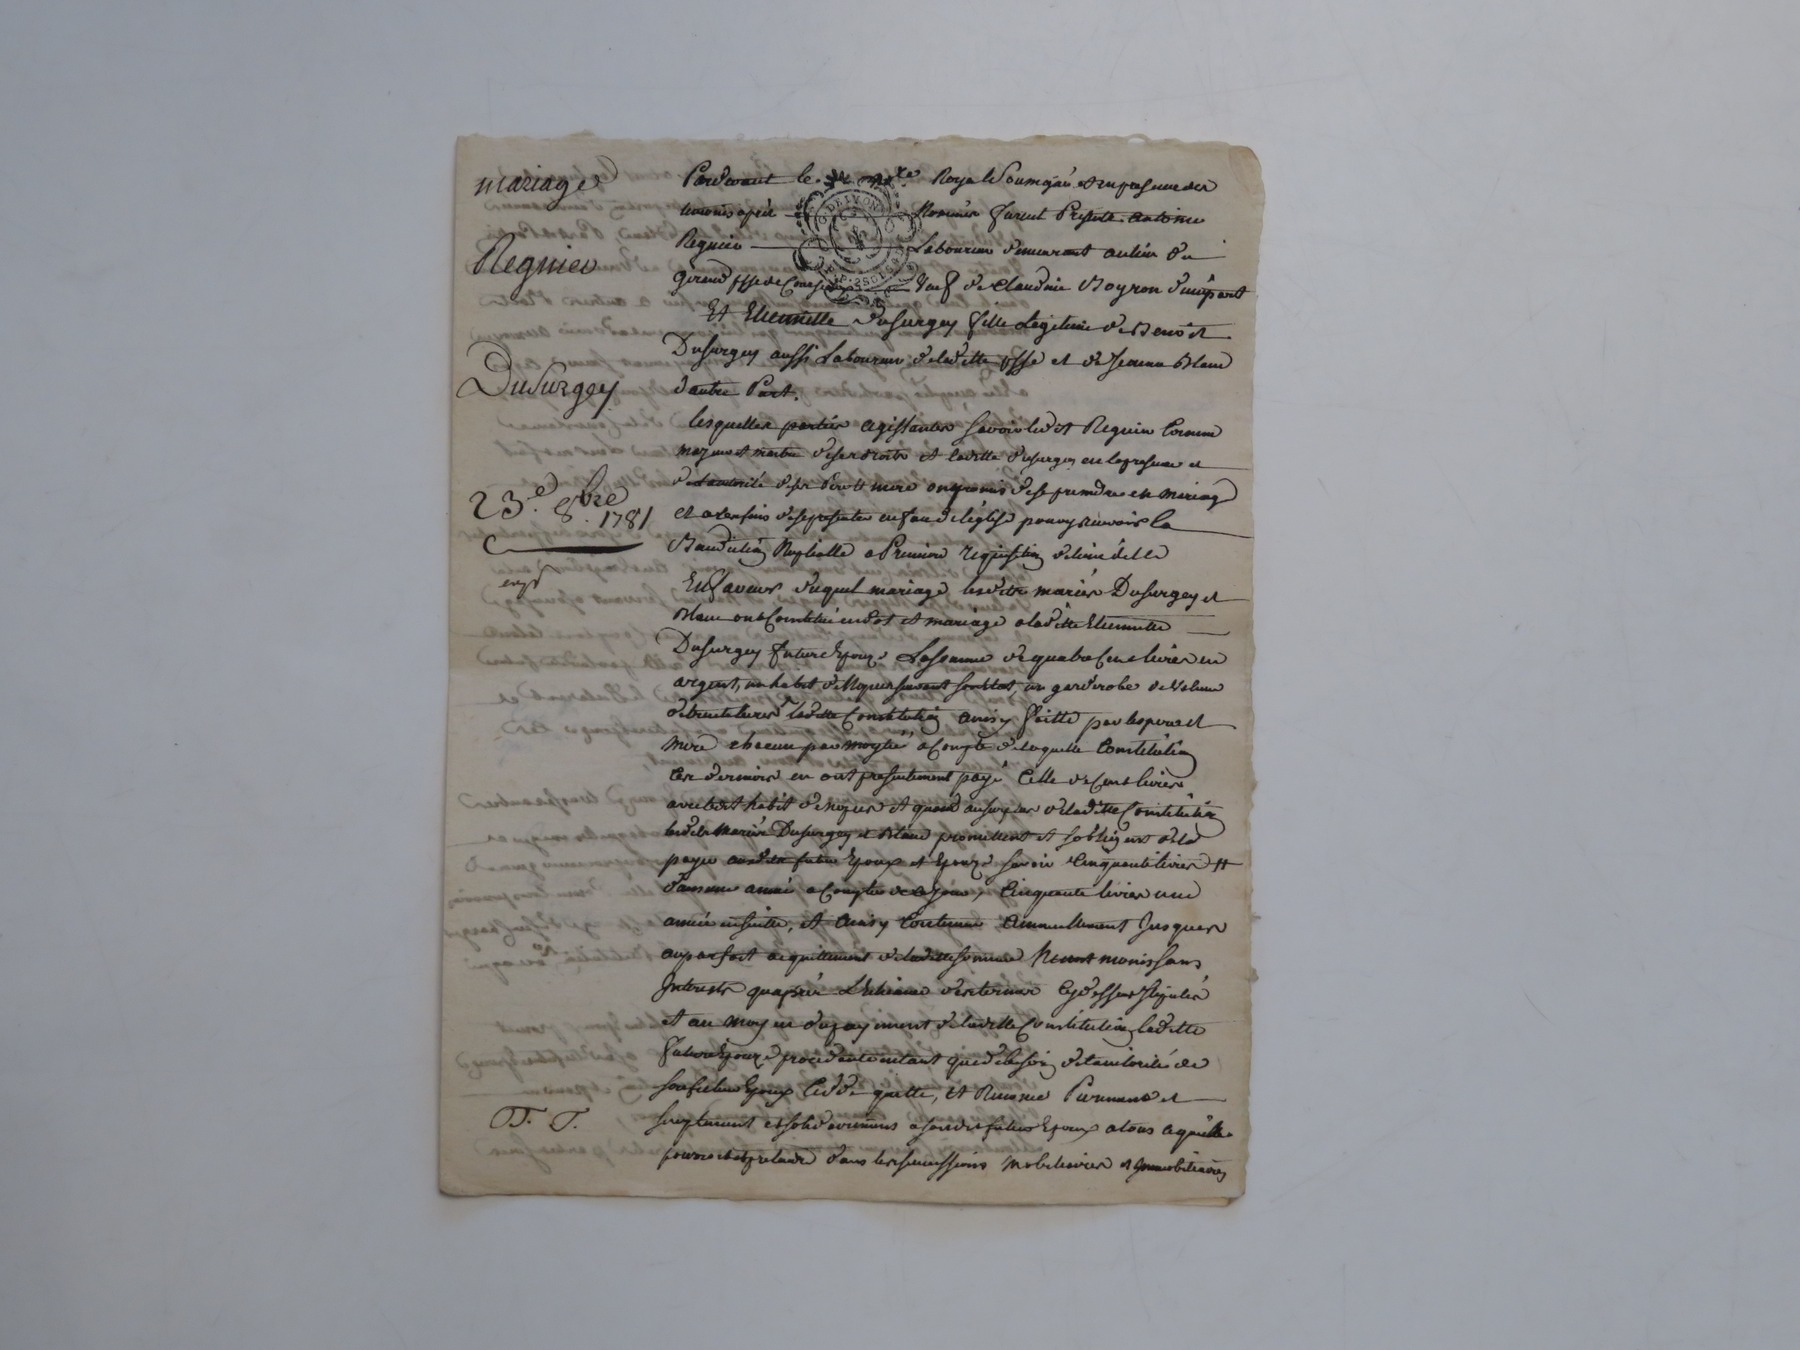 mariage
Regnier
Dusurgey
23.e 8bre 1781
expd
Pardevant le no.re Royal soussigné et en presence des
temoins après nommés furent presents antoine
Regnier Laboureur demeurant au lieu du
giraud psse de veuf de claudine Boyron d'une part
Et Etiennette Dusurgey fille Legitime de Benoit
Dusurgey aussi Laboureur de laditte psse et de Jeanne Blanc
d'autre Part.
lesquelles parties agissantes savoir ledit Regnier comme
majeur et maitre de ses droits et laditte dusurgey en la presence et
de l'autorité de ses pere et mere ont promis de se prendre en mariage
et a ces fins de se presenter en face de l'église pour y recevoir la
Benediction Nuptialle a Premiere requisition de l'un d'elle
En faveur duquel mariage lesdits mariés Dusurgey et
Blanc ont Constitué en dot et mariage a laditte Etiennette
Dusurgey future Epouze La somme de quatre Cent livres en
argent, un habit de Noces suivant son Etat, un garderobe de
laditte Constitution ainsy faitte par les pere et
mere chacun par moytié a Compte de laquelle Constitution
ces derniers en ont presentement payé Celle de Cent livres
avec ledit habit de noces et quand au surplus de laditte Constitution
lesdits Mariés Dusurgey et Blanc promettent et s'obligent de la
payer auxdits futurs Epoux et Epouze savoir Cinquante livres #
dans une année a Compter de ce Jour, Cinquante livres une
année ensuitte, et ainsy Continuer annuellement Jusques
au parfait acquittement de laditte somme Neantmoins sans
Interets qu'après L'echéance des termes Cy dessus stipulés
et au moyen du payement de laditte Constitution laditte
future Epouze procedante entant que de besoin de l'autorité de
son futur Epoux Cedde quitte, et Remet Purement et
simplement et solidairement a sondit futur Epoux a tous ce qu'elle
pourroit pretendre dans les successions mobiliaires et immobiliaires
T. T.